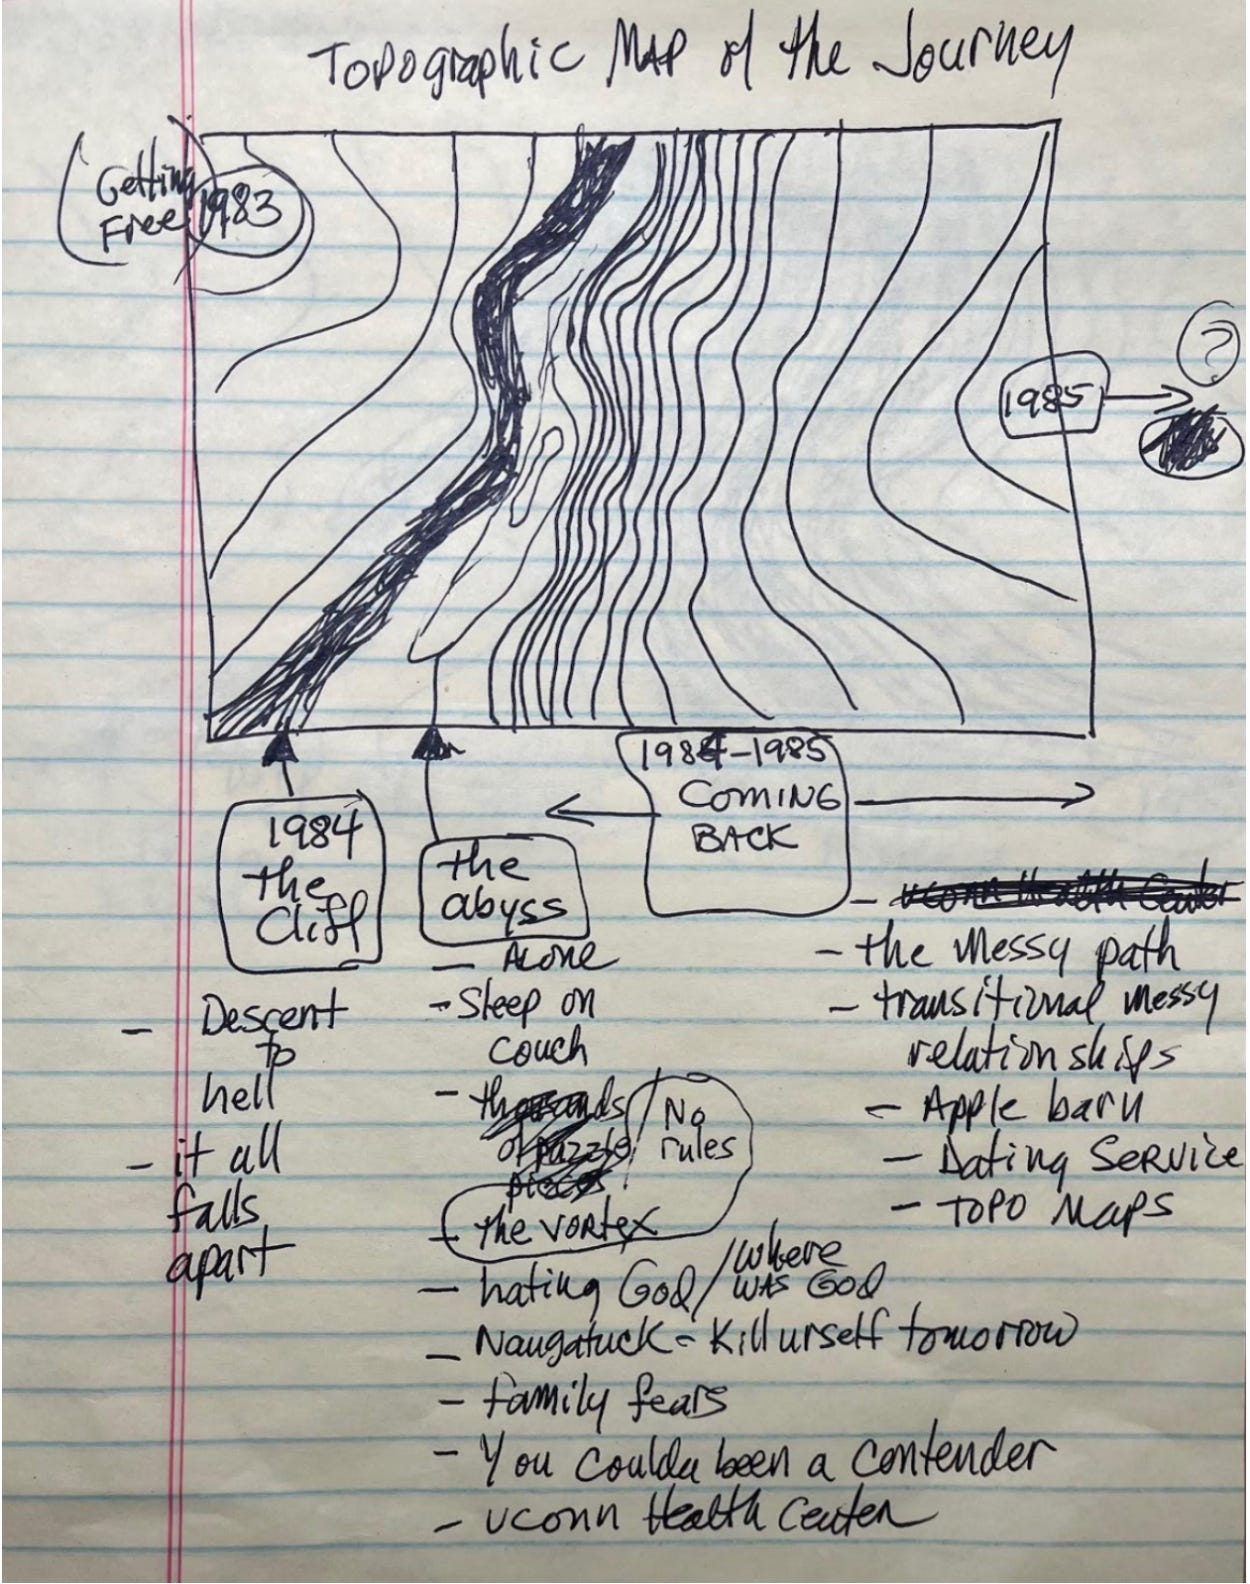 Topographic MAP of the Journey
Getting
Free
1983
?
1985
1984
the
Cliff
- Descent
to
hell
- it all
falls
apart
the
abyss
- Alone
- Sleep on
couch
- thousands
of puzzle
pieces
No
rules
- the vortex
- hating God / where
was God
- Naugatuck - Kill urself tomorrow
- family fears
- You coulda been a contender
- UConn Health Center
1984-1985
COMING
BACK
- UConn Health Center
- the messy path
- transitional messy
relationships
- Apple barn
- Dating Service
- TOPO Maps